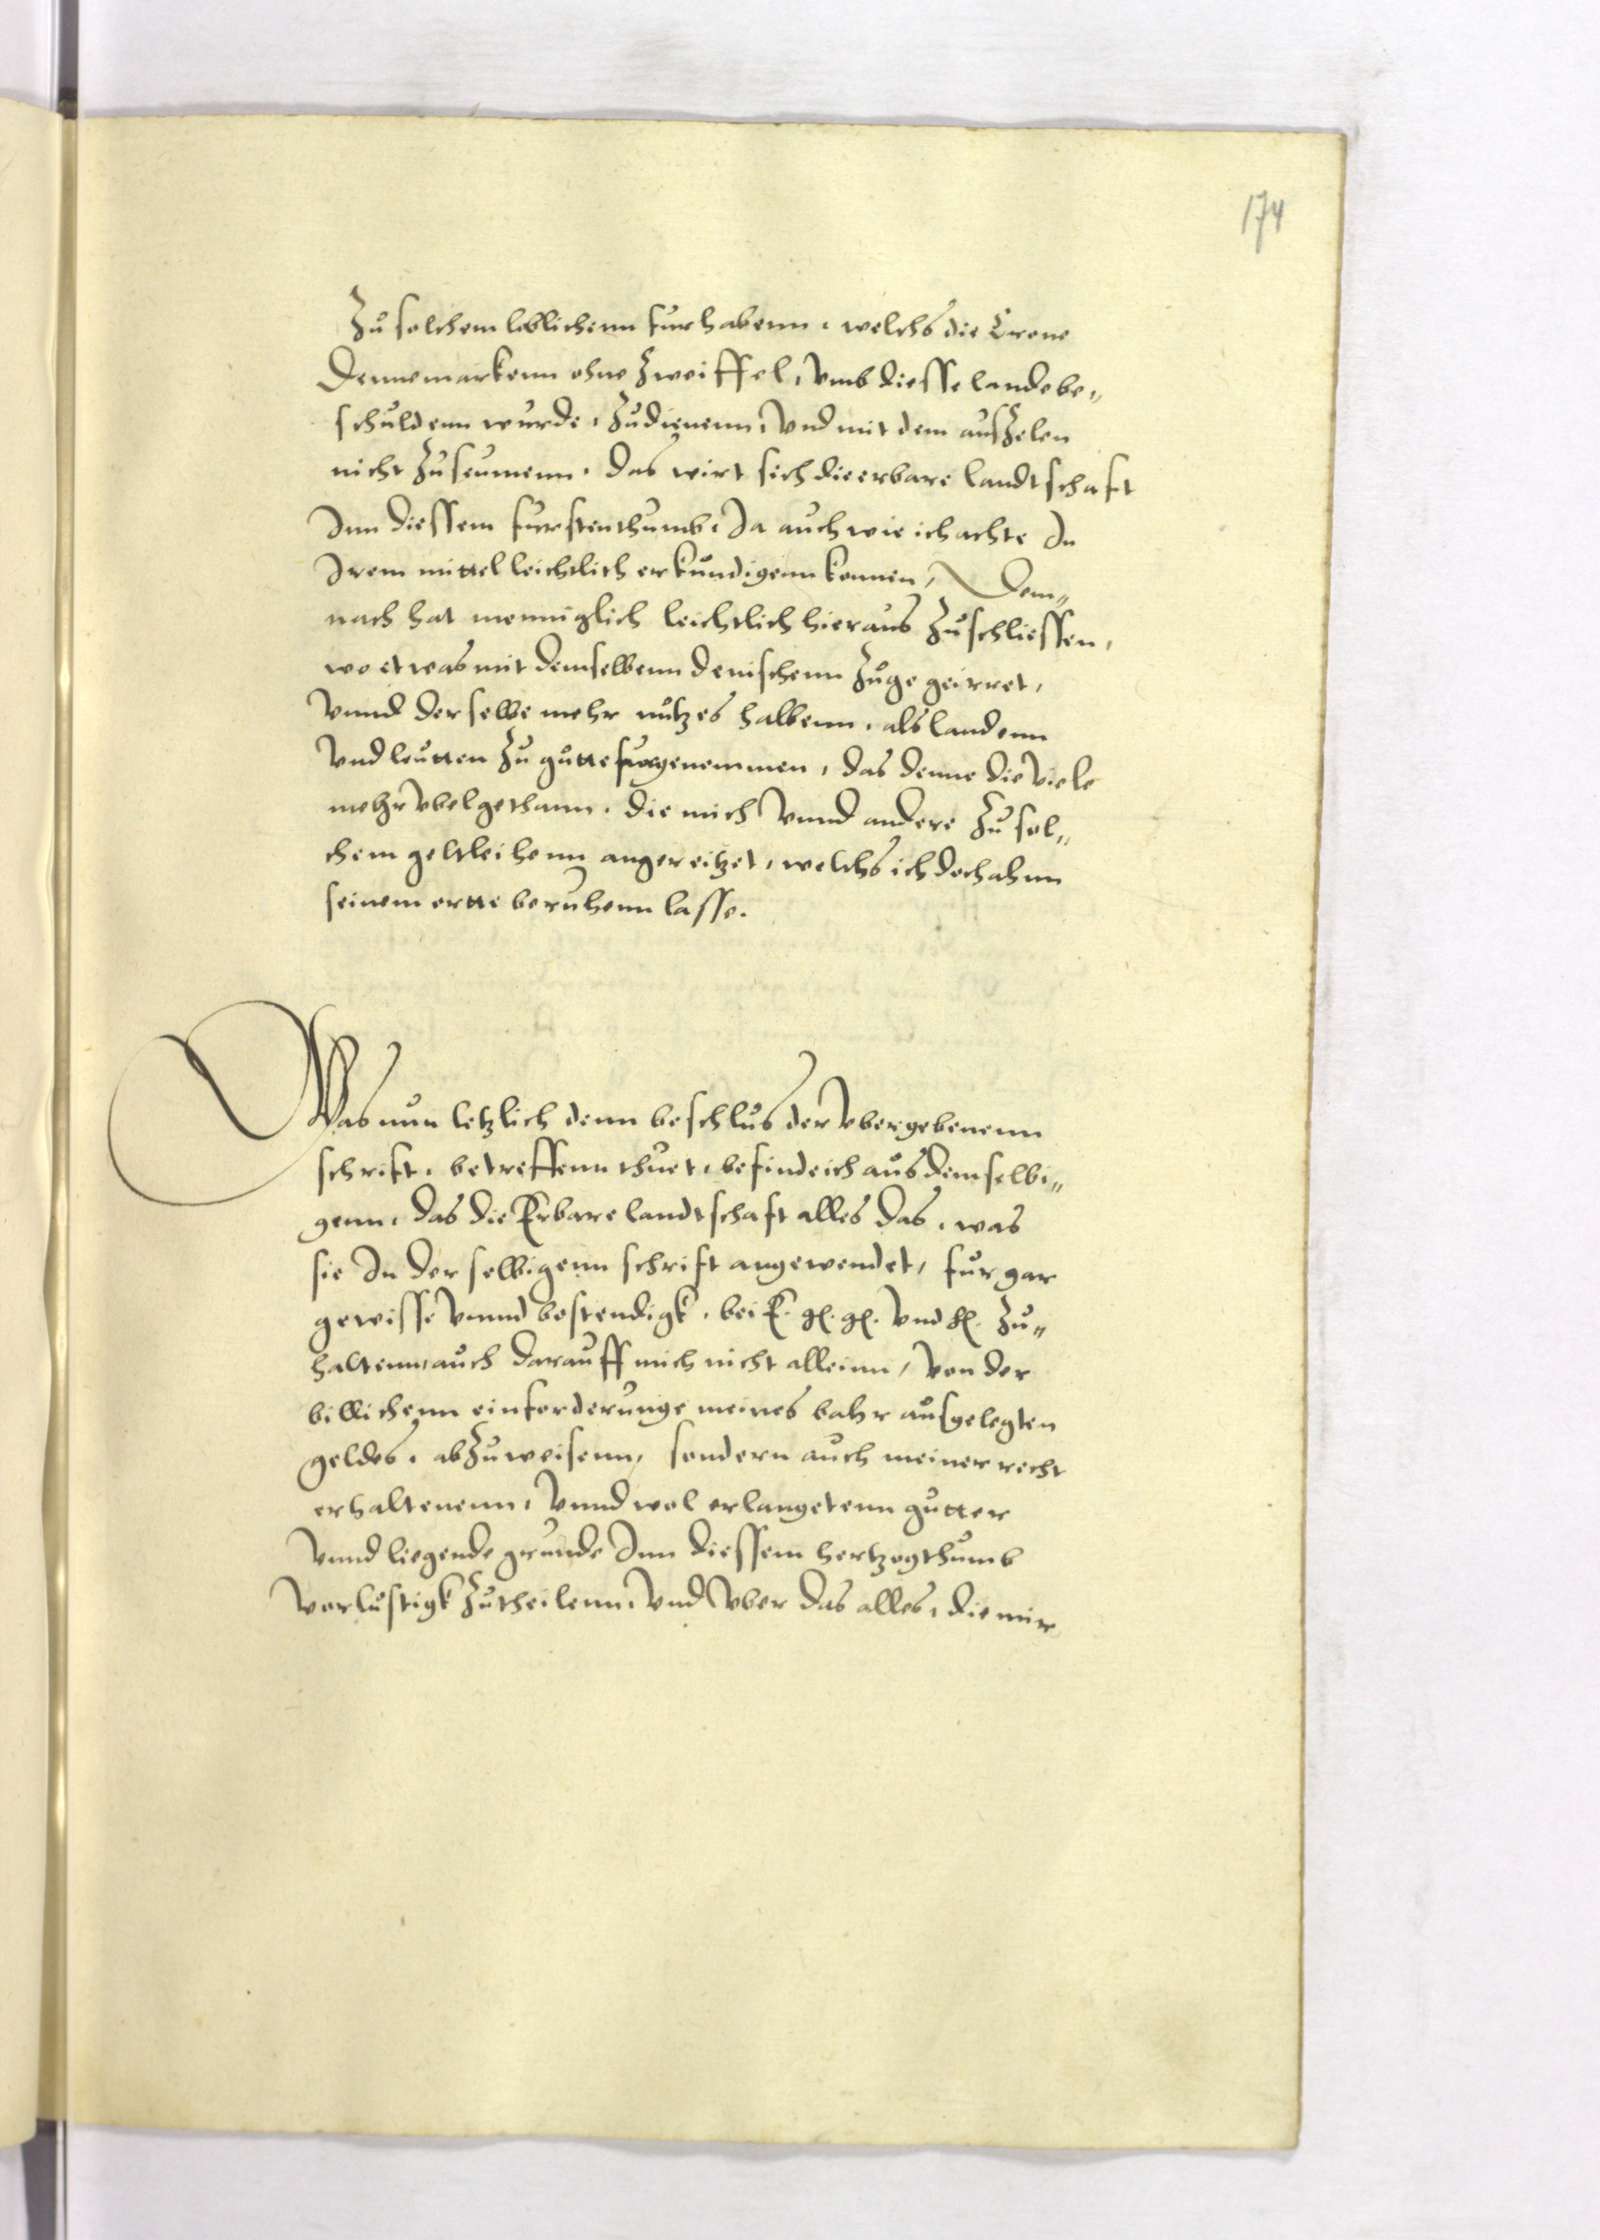 174
Zu solchem loblichenn furhabenn, welchs die Crone
Dennemarkenn ohne Zweiffel, vmb diesse lande be„
schuldenn wurde, Zudienenn, vnd mit dem ausZelen
nicht Zuseumenn, das wirt sich die erbare landtschaft
Inn diessem furstenthumb, Ja auch wie ich achte In
Irem mittel leichtlich erkundigenn konnen, Dem„
nach hat menniglich leichtlich hieraus Zuschliessen,
wo etwas mit demselbenn denischenn Zuge geirret,
vnnd derselbe mehr nutzes halbenn, als landenn
vnd leutten Zu gutte furgenommen, das denne die viele
mehr vbel gethann, die mich vnnd andere Zu sol„
chem geltleihenn angereitzet, welchs ich doch ahnn
seinem ortte beruhenn lasse.
Was nun letzlich denn beschlus der vbergebenenn
schrift, betreffenn thuet, befinde ich aus demselbi„
genn, das die Erbare landtschaft alles das, was
sie In derselbigenn schrift angewendet, fur gar
gewisse vnnd bestendigk, bei E. vnd Zu„
haltenn, auch darauff mich nicht alleinn, von der
billichenn einforderunge meines bahr ausgelegten
geldes, abZuweisenn, sondern auch meiner recht
erhaltenenn, vnnd wol erlangetenn gutter
vnnd liegende grunde Inn diessem hertzogthumb
vorlustigk Zutheilenn, vnd vber das alles, die mir